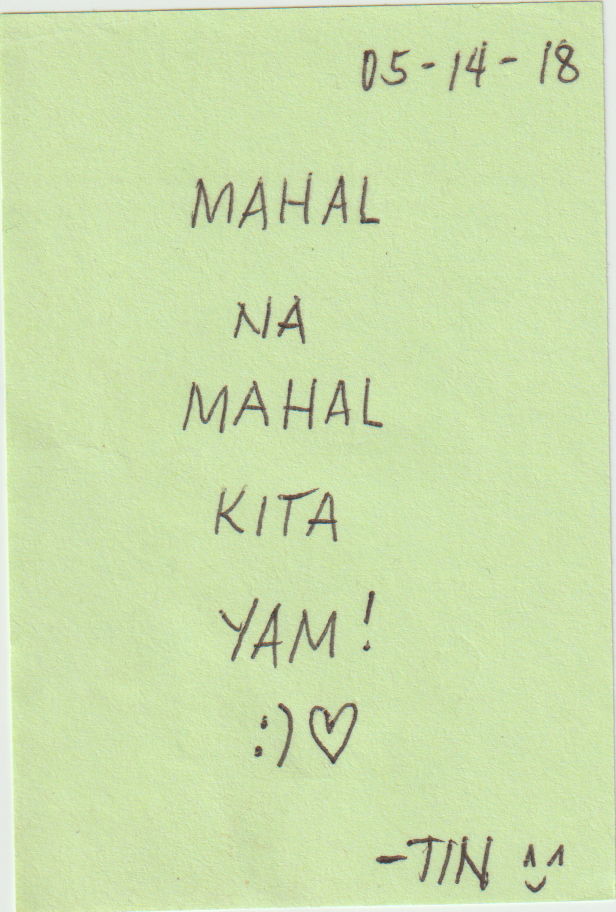 05-14-18
MAHAL
NA
MAHAL
KITA
YAM!
:)♡
-TIN ^‿^